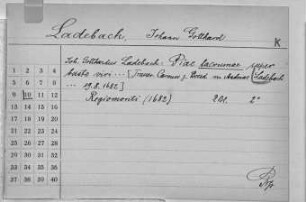 Ladebach, Johann Gotthard
K
Joh. Gotthardus Ladebach: Piae lacrumae super
busto viri ... [Trauer Carmen z. Andreas Ladebach
... 29.8.1682]
Regiomonti (1682) 2 Bl. 2°
1 2 3 4
5 6 7 8
9 10 11 12
13 14 15 16
17 18 19 20
21 22 23 24
25 26 27 28
29 30 31 32
33 34 35 36
37 38 39 40